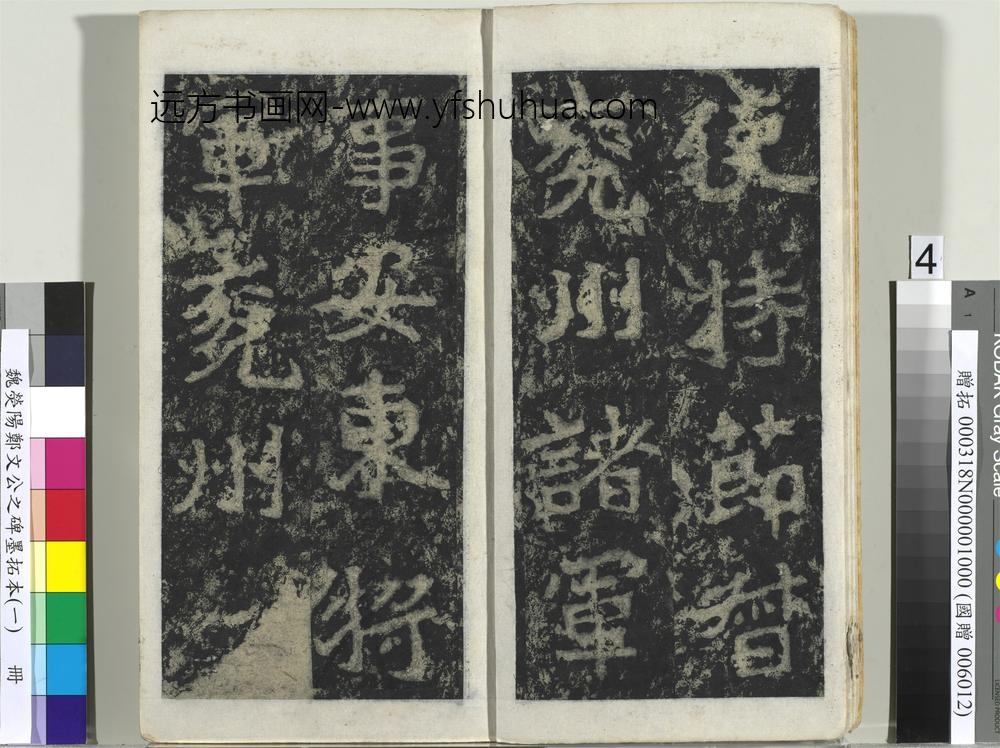 远方书画网-www.yfshuhua.com
使持節督
兗州諸軍
事安東將
軍兗州
4
A
1
KODAK Gray Scale
贈拓 000318N000001000 (國贈 006012)
魏滎陽鄭文公之碑墨拓本(一) 冊